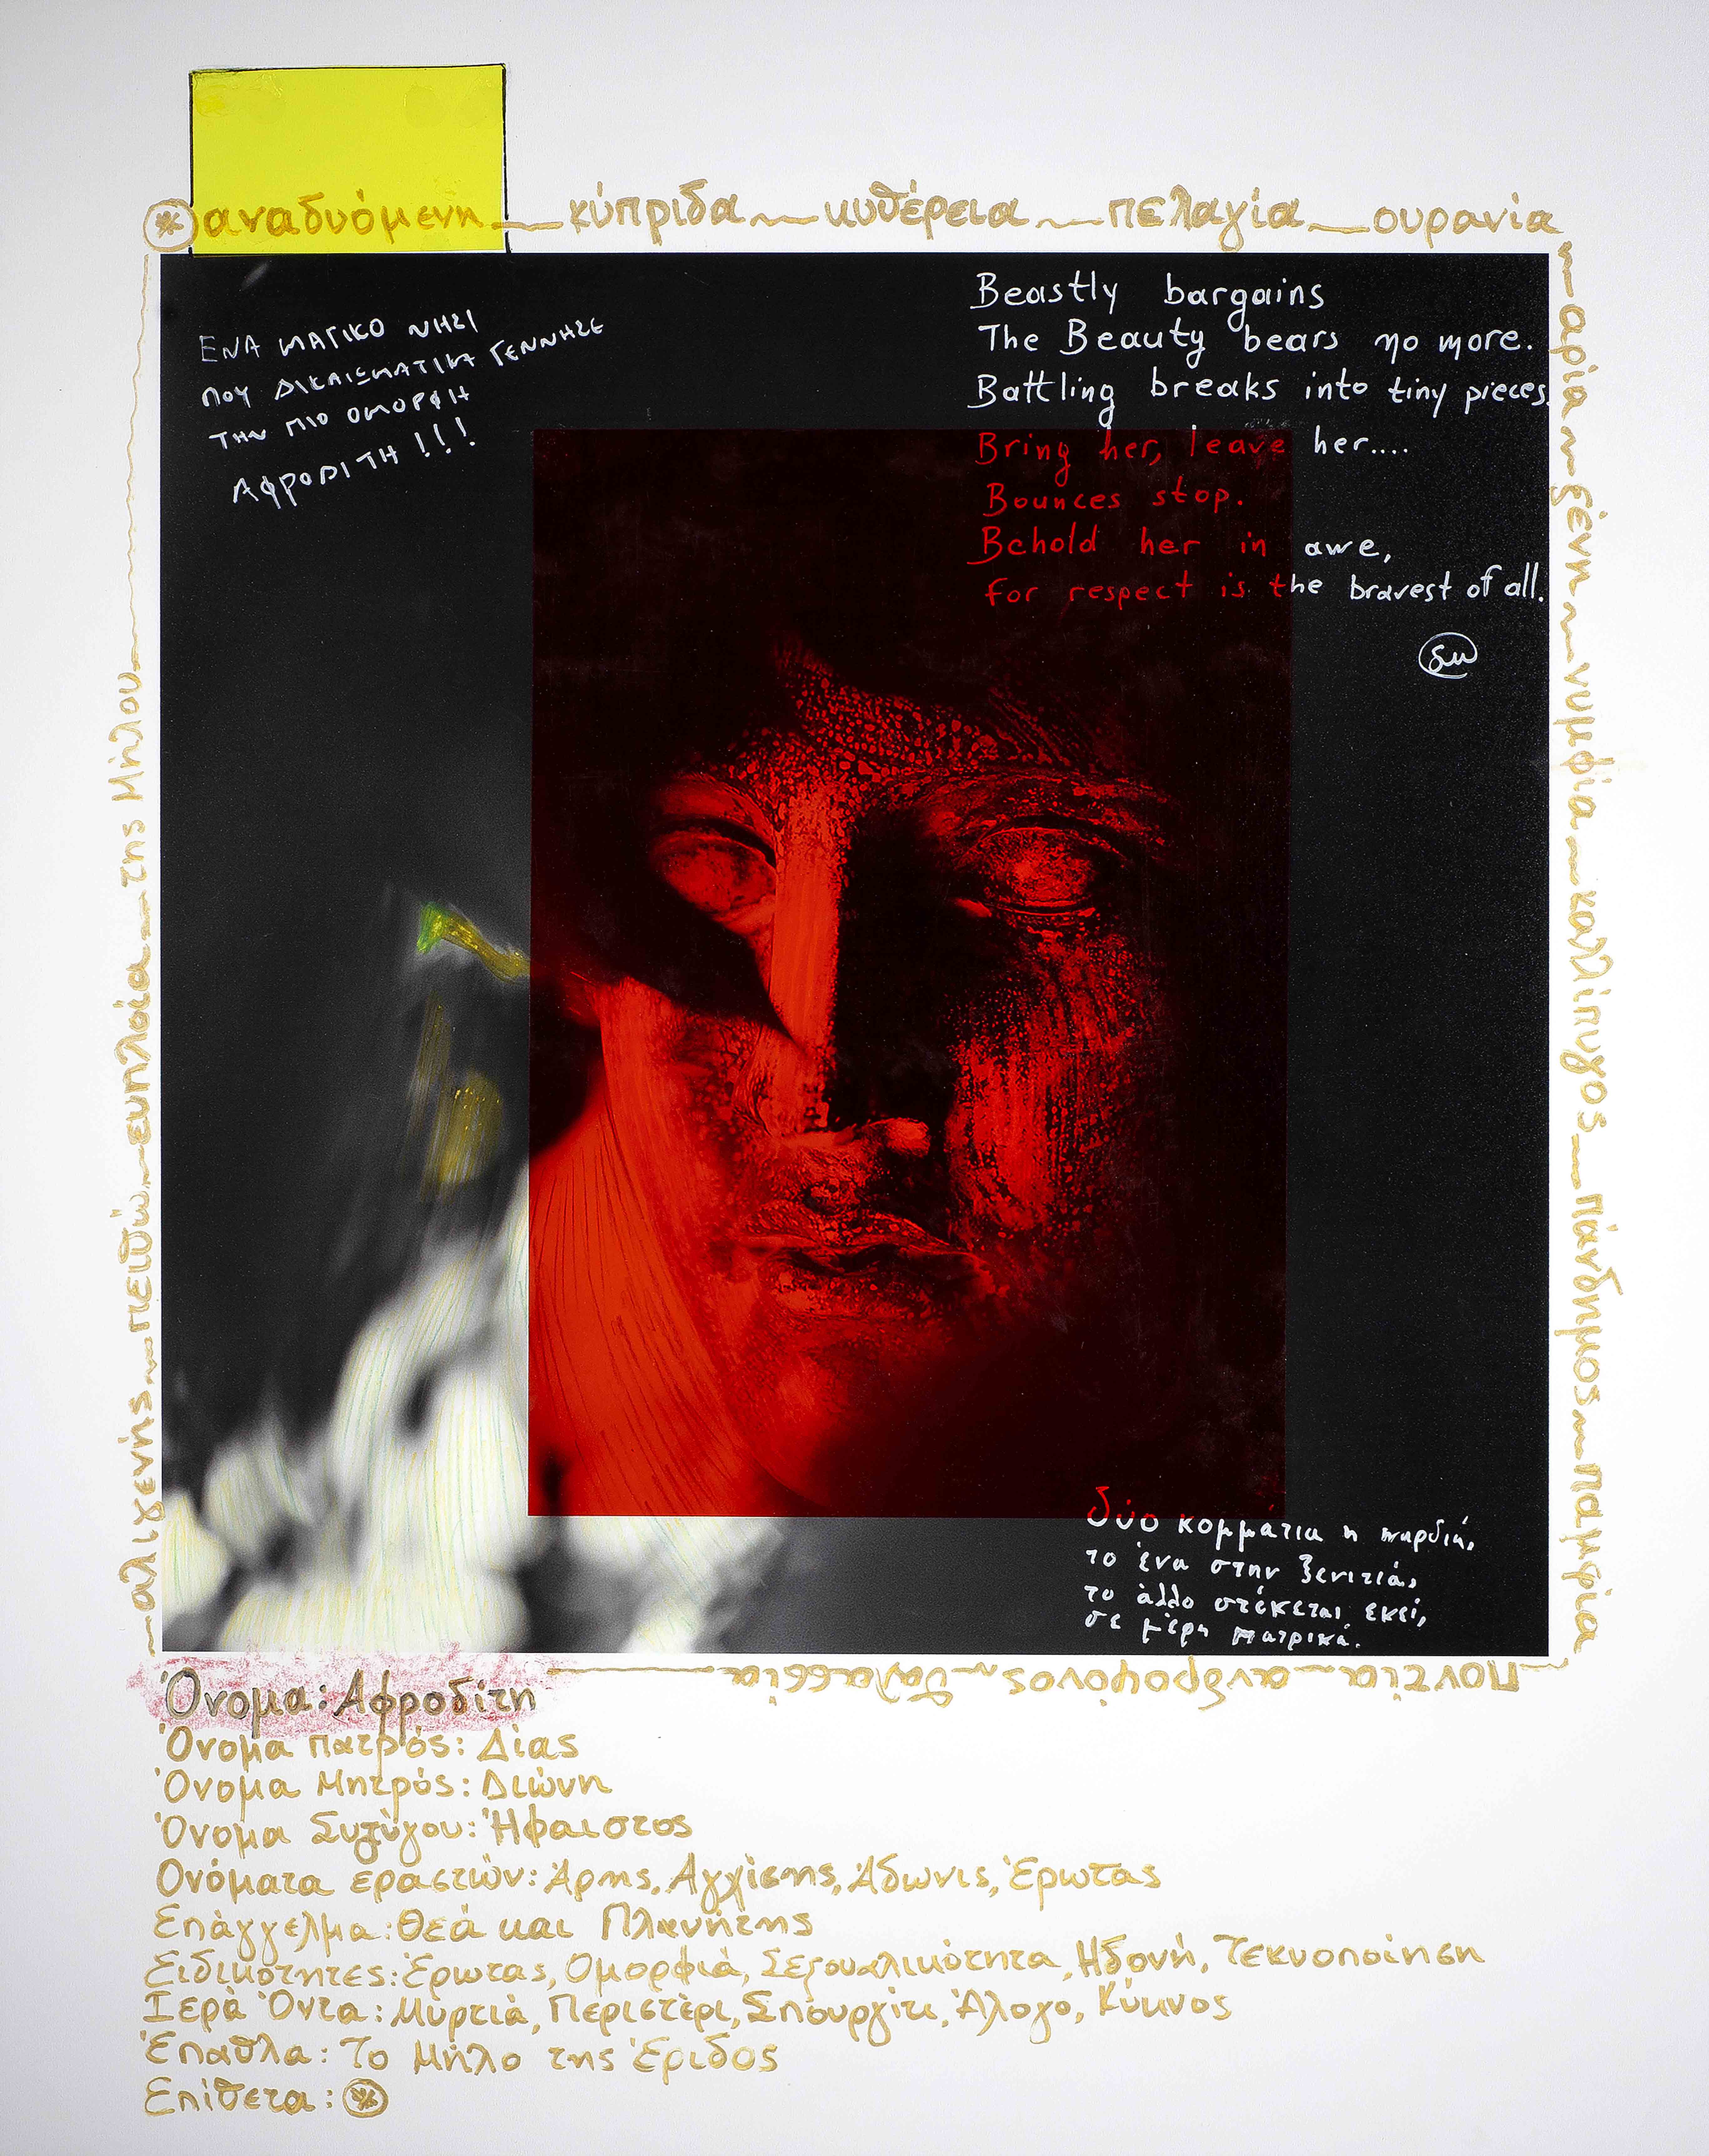 αναδυόμενη κύπριδα κυθέρεια πελαγία ουρανία
αρία ξένη νυμφία καλλίπυγος πάνδημος παμφία
ποντία ανδροφόνος θαλασσία
αλιγενής πειθώ ευπλοία της Μήλου
ΕΝΑ ΜΑΓΙΚΟ ΝΗΣΙ
ΠΟΥ ΔΙΚΑΙΩΜΑΤΙΚΑ ΓΕΝΝΗΣΕ
ΤΗΝ ΠΙΟ ΟΜΟΡΦΗ
ΑΦΡΟΔΙΤΗ!!!
Beastly bargains
The Beauty bears no more.
Battling breaks into tiny pieces.
Bring her, leave her....
Bounces stop.
Behold her in awe,
for respect is the bravest of all.
δύο κομμάτια η καρδιά,
το ένα στην ξενιτιά,
το άλλο στέκεται εκεί,
σε μέρη πατρικά.
Όνομα: Αφροδίτη
Όνομα πατρός: Δίας
Όνομα Μητρός: Διώνη
Όνομα Συζύγου: Ήφαιστος
Ονόματα εραστών: Άρης, Αγχίσης, Άδωνις, Έρωτας
Επάγγελμα: Θεά και Πλανήτης
Ειδικότητες: Έρωτας, Ομορφιά, Σεξουαλικότητα, Ηδονή, Τεκνοποίηση
Ιερά Όντα: Μυρτιά, Περιστέρι, Σπουργίτι, Άλογο, Κύκνος
Έπαθλα: Το Μήλο της Έριδος
Επίθετα: